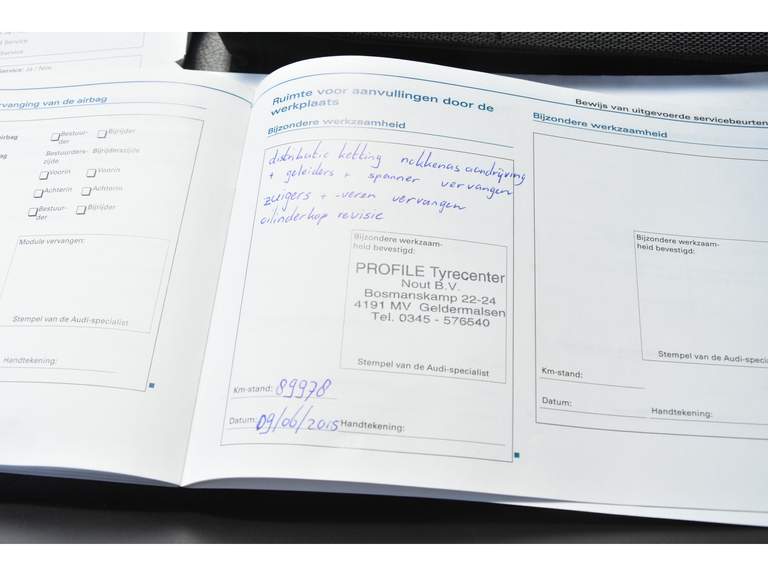 Service
Service: Ja / Nee
rvanging van de airbag
airbag
Bestuur-
der
Bijrijder
ag
Bestuurders-
zijde
Bijrijderszijde
Voorin
Voorin
Achterin
Achterin
Bestuur-
der
Bijrijder
Module vervangen:
Stempel van de Audi-specialist
Handtekening:
Ruimte voor aanvullingen door de
werkplaats
Bijzondere werkzaamheid
distributie ketting nokkenas aandrijving
+ geleiders + spanner vervangen
zuigers + -veren vervangen
cilinderkop revisie
Bijzondere werkzaam-
heid bevestigd:
PROFILE Tyrecenter
Nout B.V.
Bosmanskamp 22-24
4191 MV Geldermalsen
Tel. 0345 - 576540
Stempel van de Audi-specialist
Km-stand: 89978
Datum: 09/06/2015 Handtekening:
Bewijs van uitgevoerde servicebeurten
Bijzondere werkzaamheid
Bijzondere werkzaam-
heid bevestigd:
Stempel van de Audi-specia
Km-stand:
Datum:
Handtekening: